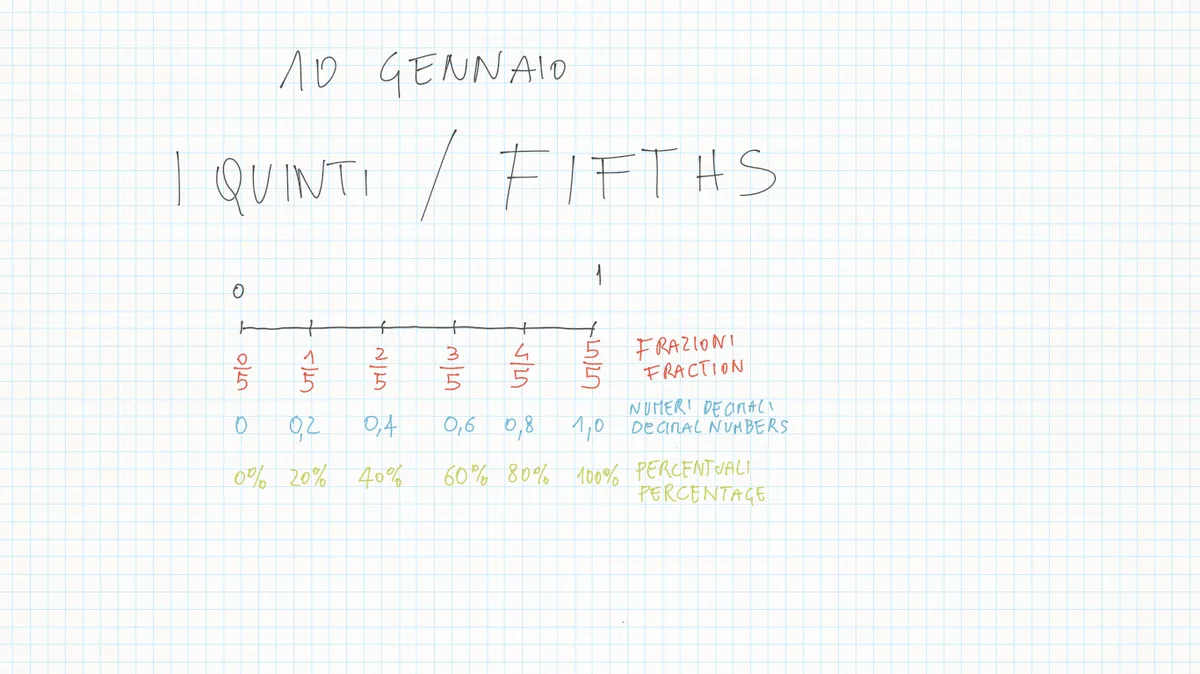 10 GENNAIO
I QUINTI / FIFTHS
0 1
0/5 1/5 2/5 3/5 4/5 5/5 FRAZIONI
FRACTION
NUMERI DECIMALI
0 0,2 0,4 0,6 0,8 1,0 DECIMAL NUMBERS
0% 20% 40% 60% 80% 100% PERCENTUALI
PERCENTAGE